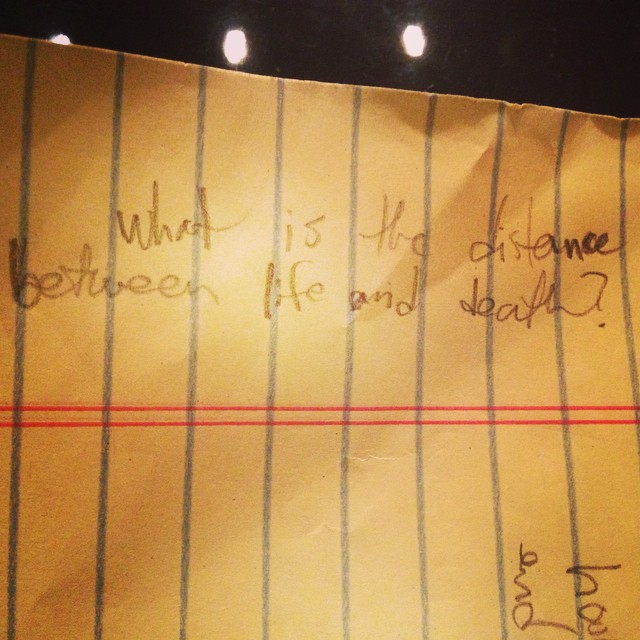 What is the distance
between life and death?
and